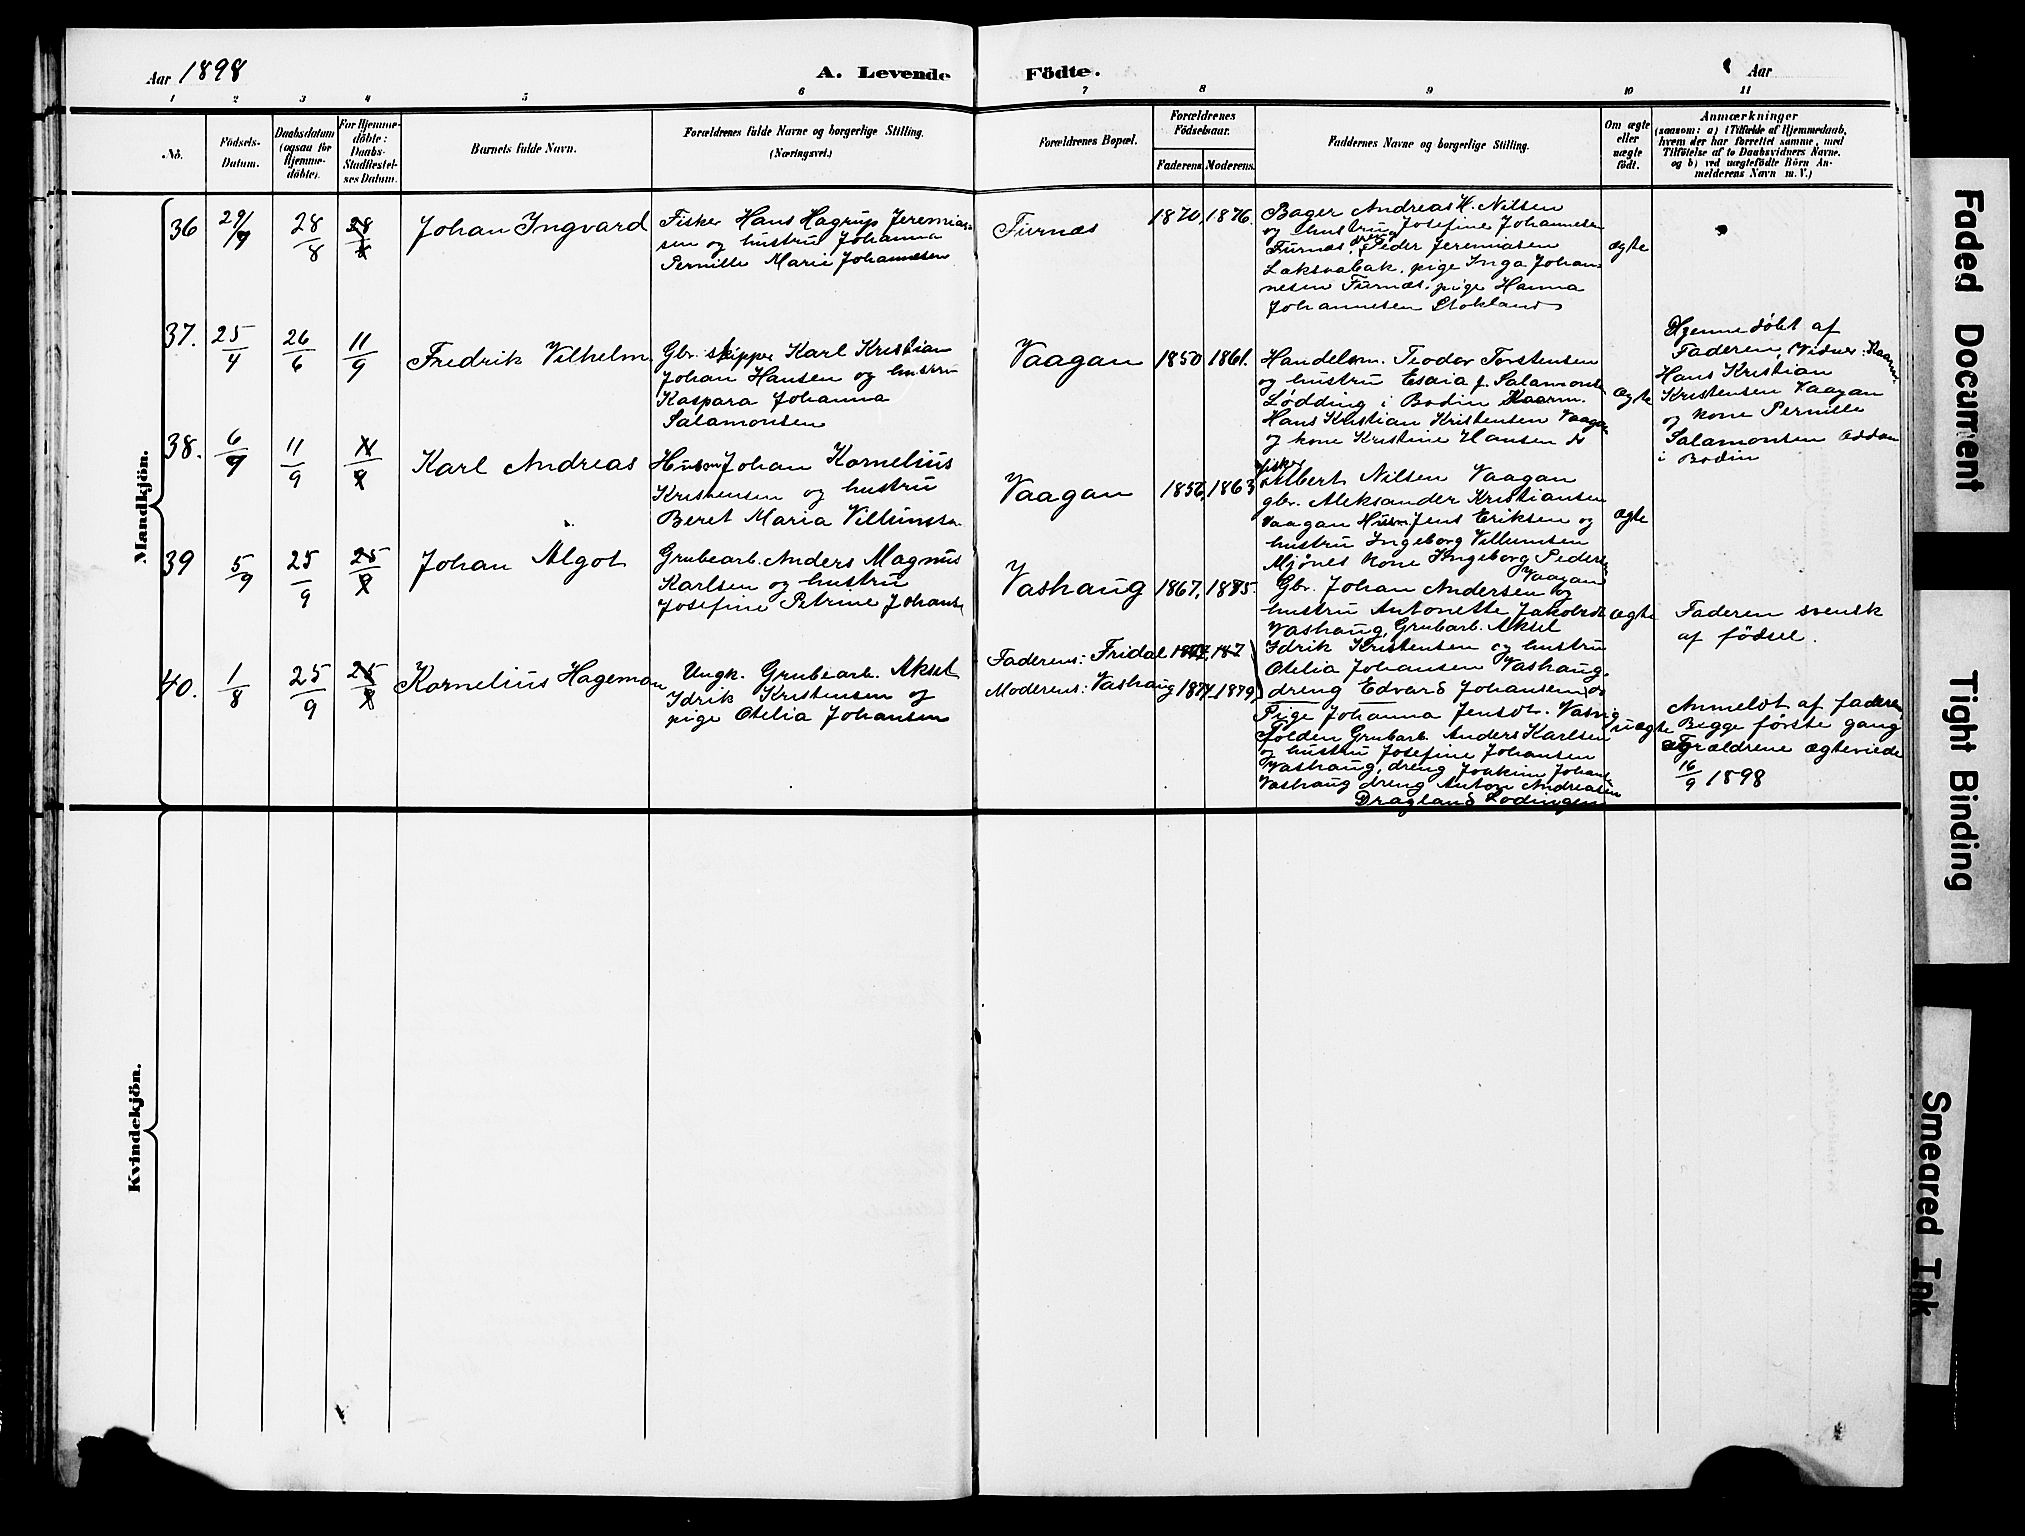 Aar 1898
A. Levende Födte.
Aar
1 2 3 4 5 6 7 8 9 10 11
No.
Födsels-
Datum.
Daabsdatum
(ogsaa for
Hjemme-
döbte).
For Hjemme-
döbte:
Daabs-
Stadfæstel-
ses Datum.
Barnets fulde Navn.
Forældrenes fulde Navne og borgerlige Stilling.
(Næringsvei.)
Forældrenes Bopæl.
Forældrenes
Födselsaar.
Faderens Moderens.
Faddernes Navne og borgerlige Stilling.
Om ægte
eller
uægte
födt.
Anmærkninger
(saasom: a) i Tilfælde af Hjemmedaab,
hvem der har forrettet samme, med
Tilföielse af to Daabsvidners Navne,
og b) ved uægtefödte Börn An-
melderens Navn m. V.)
Mandkjön.
36 29/9 28/8 28/8 Johan Ingvard
Fisker Hans Hagrup Jeremias-
sen og hustru Johanna
Pernille Marie Johannesen
Furnæs 1870, 1876.
Bager Andreas H. Nilsen
og hustru Josefine Johannesen
Furnæs. dreng Peder Jeremiasen
Laksvabak. pige Inga Johan-
nesen Furnæs. pige Hanna
Johannesen Stokland
ægte
37. 25/4 26/6 11/9 Fredrik Vilhelm
Gbr. skipper Karl Kristian
Johan Hansen og hustru
Kaspara Johanna
Salamonsen
Vaagan 1850 1861.
Handelsm. Teodor Torstensen
og hustru Esaia f. Salamonsen
Lødding i Bodin Kaarm.
Hans Kristian Kristensen Vaagan
og kone Kristine Hansen ds
ægte
Hjemmedøbt af
Faderen, Vidner: Kaarm.
Hans Kristian
Kristensen Vaagan
og kone Pernille
Salamonsen Oddan
i Bodin
38. 6/9 11/9 11/9 Karl Andreas
Husm Johan Kornelius
Kristensen og hustru
Beret Maria Villumsen
Vaagan 1856, 1863
Fisker
Albert Nilsen Vaagan
gbr. Aleksander Kristiansen
Vaagan Husm Jens Eriksen og
hustru Ingeborg Villumsen
Mjønes kone Ingeborg Pedersen
Vaagan
ægte
39 5/9 25/9 25/9 Johan Algot
Grubearb. Anders Magnus
Karlsen og hustru
Josefine Petrine Johans
Vashaug 1867, 1875.
Gbr. Johan Andersen og
hustru Antonette Jakobsdt
Vashaug, Grubarb. Aksel
Idrik Kristensen og hustru
Otelia Johansen Vashaug,
dreng Edvard Johansen ds
ægte
Faderen svensk
af fødsel.
40. 1/8 25/9 25/9 Kornelius Hageman
Ungk. Grubearb. Aksel
Idrik Kristensen og
pige Otelia Johansen
Faderens: Fridal
Moderens: Vashaug 1874, 1879,
Pige Johanna Jensdt. Vasvig
Folden Grubarb. Anders Karlsen
og hustru Josefine Johansen
Vashaug, dreng Joakim Johans
Vashaug dreng Anton Andreasen
Dragland Lødingen
uægte
Anmeldt af faderen
Begge første gang
Forældrene ægteviede
16/9 1898
Kvindekjön.
Faded Document
Tight Binding
Smeared Ink